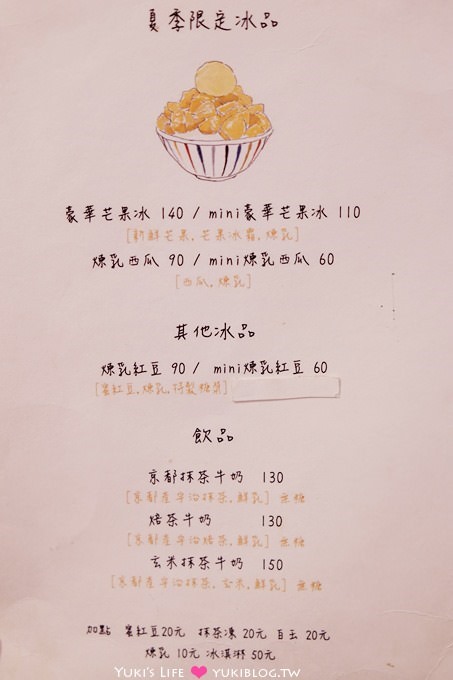 夏季限定冰品
豪華芒果冰 140 / mini豪華芒果冰 110
[新鮮芒果,芒果冰霜,煉乳]
煉乳西瓜 90 / mini煉乳西瓜 60
[西瓜,煉乳]
其他冰品
煉乳紅豆 90 / mini煉乳紅豆 60
[蜜紅豆,煉乳,特製糖漿]
飲品
京都抹茶牛奶 130
[京都產宇治抹茶,鮮乳] 無糖
焙茶牛奶 130
[京都產宇治焙茶,鮮乳] 無糖
玄米抹茶牛奶 150
[京都產宇治抹茶,玄米,鮮乳] 無糖
加點 蜜紅豆20元 抹茶凍 20元 白玉 20元
煉乳 10元 冰淇淋 50元
YUKI'S LIFE ❤ YUKIBLOG.TW